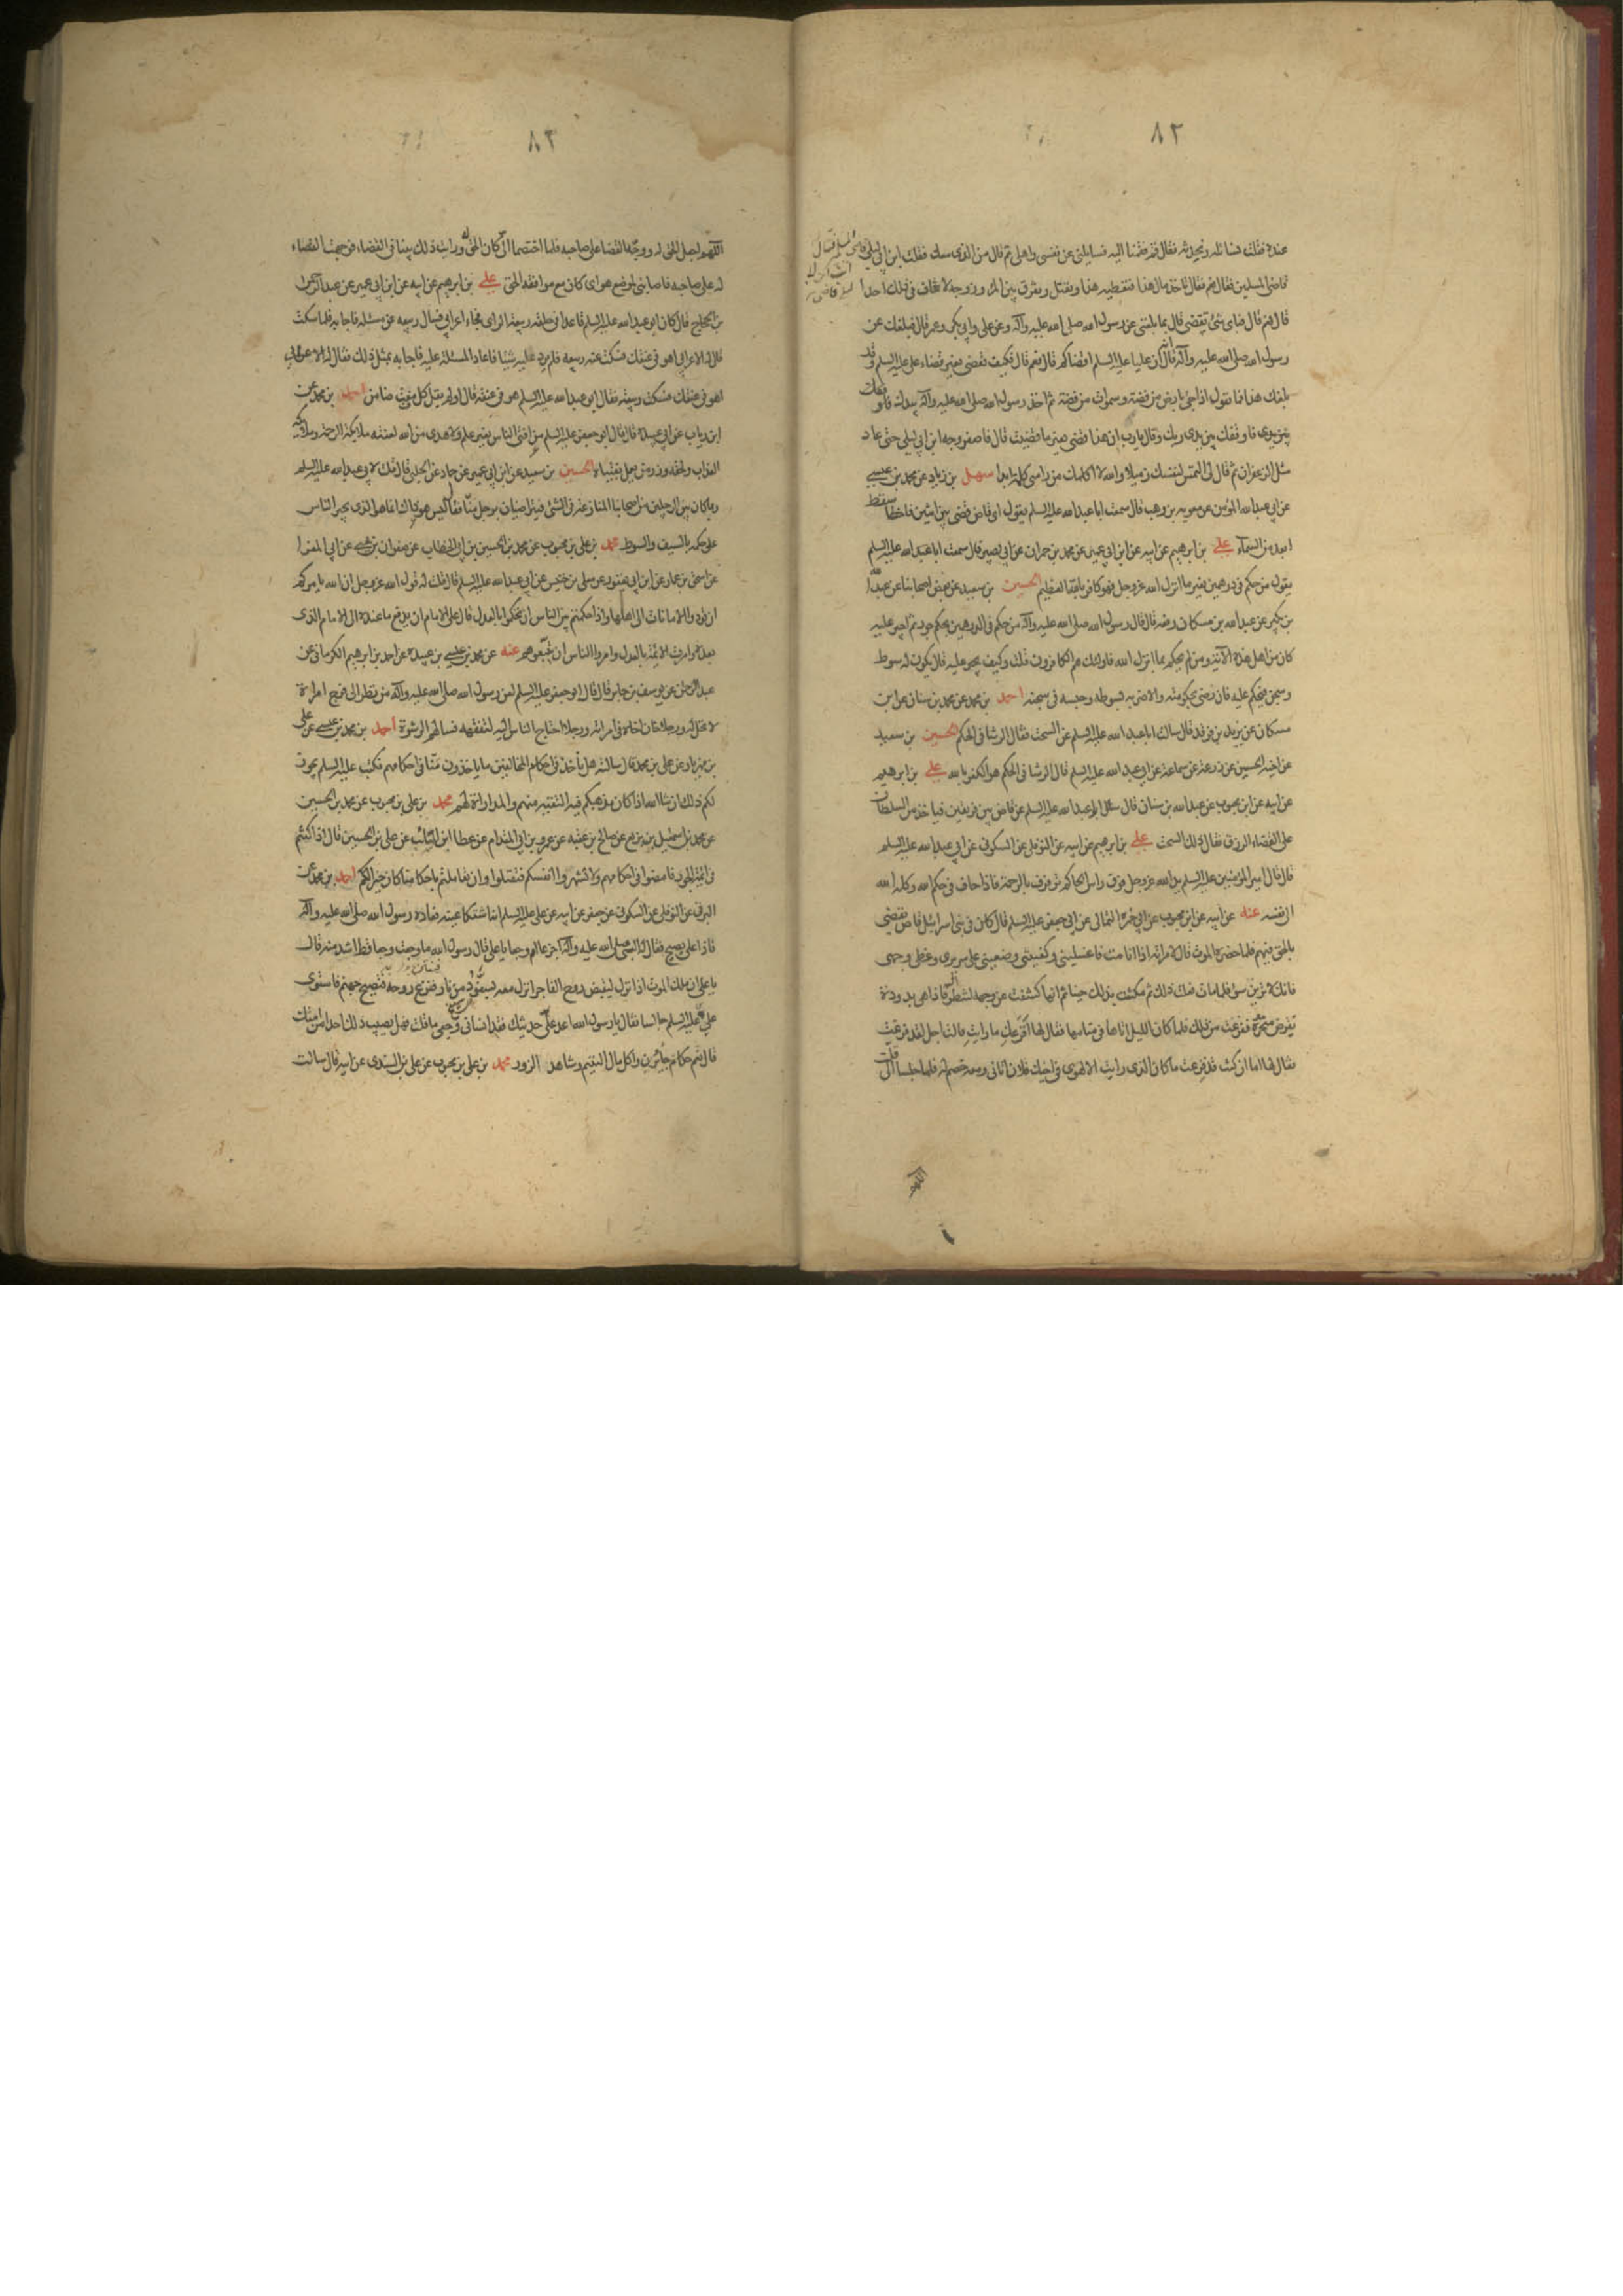 ٨٢
عنده فقلت نسائله ونحدثه فقال قم فقمنا اليه فسايلنى عن نفسى واهلى ثم قال من الذى معك فقلت ابن ابى ليلى قاضى المسلمين فقال
قاضى المسلمين فقال نعم فقال تاخذ مال هذا فتعطيه هذا وتقتل وتفرق بين المرء وزوجه لا تخاف فى ذلك احدا
قال نعم قال فباى شئ تقضى قال بما بلغنى عن رسول الله صلى الله عليه وآله وعن على وابى بكر وعمر قال فبلغك عن
رسول الله صلى الله عليه وآله انه قال ان عليا عليه السلم اقضاكم قال نعم قال فكيف تقضى بغير قضاء على عليه السلم وقد
بلغك هذا فما تقول اذا جئ بارض من فضة وسموات من فضة ثم اخذ رسول الله صلى الله عليه وآله بيدك فاوقفك
بين يدى ربك وقال يارب ان هذا قضى بغير ما قضيت قال فاصفر وجه ابن ابى ليلى حتى عاد
مثل الزعفران ثم قال لى التمس لنفسك زميلا والله لا اكلمك من راسى كلمة ابدا سهل بن زياد عن محمد بن عيسى
عن ابى عبد الله المؤمن عن معوية بن وهب قال سمعت ابا عبد الله عليه السلم يقول اى قاض قضى بين اثنين فاخطا سقط
ابعد من السمآء على بن ابرهيم عن ابيه عن ابن ابى عمير عن محمد بن حمران عن ابى بصير قال سمعت ابا عبد الله عليه السلم
يقول من حكم فى درهمين بغير ما انزل الله عز وجل فهو كافر بالله العظيم الحسين بن سعيد عن بعض اصحابنا عن عبد الله
بن بكير عن عبد الله بن مسكان رفعه قال قال رسول الله صلى الله عليه وآله من حكم فى الدرهمين بحكم جور ثم اجبر عليه
كان من اهل هذه الآية ومن لم يحكم بما انزل الله فاولئك هم الكافرون قلت وكيف يجبر عليه قال يكون له سوط
وسجن فيحكم عليه فان رضى بحكومته والا ضربه بسوطه وحبسه فى سجنه احمد بن محمد عن محمد بن سنان عن ابن
مسكان عن يزيد بن فرقد قال سالت ابا عبد الله عليه السلم عن السحت فقال الرشا فى الحكم الحسين بن سعيد
عن اخيه الحسن عن زرعة عن سماعة عن ابى عبد الله عليه السلم قال الرشا فى الحكم هو الكفر بالله على بن ابرهيم
عن ابيه عن ابن محبوب عن عبد الله بن سنان قال سئل ابو عبد الله عليه السلم عن قاض بين فريقين فياخذ من السلطان
على القضاء الرزق فقال ذلك السحت على بن ابرهيم عن ابيه عن النوفلى عن السكونى عن ابى عبد الله عليه السلم
قال قال امير المؤمنين عليه السلم يد الله عز وجل فوق راس الحاكم ترفرف بالرحمة فاذا حاف فى حكم الله وكله الله
الى نفسه عنه عن ابيه عن ابن محبوب عن ابى حمزه الثمالى عن ابى جعفر عليه السلم قال كان فى بنى اسرائيل قاض يقضى
بالحق فيهم فلما حضره الموت قال لامراته اذا انا مت فاغسلينى وكفنينى وضعينى على سريرى وغطى وجهى
فانك لا ترين سوا فلما مات فعلت ذلك ثم مكثت بذلك حينا ثم انها كشفت عن وجهه لتنظر اليه فاذا هى بدودة
تقرض منخره ففزعت من ذلك فلما كان الليل اتاها فى منامها فقال لها افزعك ما رايت قالت اجل لقد فزعت
فقال لها اما ان كنت فزعت ما كان الذى رايت الا لهوى فى اخيك فلان اتانى ومعه خصم له فلما جلسا الى قلت
٨٣
اللهم اجعل الحق له ووجّه القضا على صاحبه فلما اختصما الى كان الحق له ورايت ذلك بينا فى القضاء فوجهت القضاء
له على صاحبه فاصابنى لموضع هواى كان مع موافقة الحق على بن ابرهيم عن ابيه عن ابن ابى عمير عن عبد الرحمن
بن الحجاج قال كان ابو عبد الله عليه السلم قاعدا فى حلقة ربيعة الراى فجاء اعرابى فسال ربيعه عن مسئلة فاجابه فلما سكت
قال له الاعرابى اهو فى عنقك فسكت عنه ربيعه فلم يرد عليه شيئا فاعاد المسئلة عليه فاجابه بمثل ذلك فقال له الاعرابى
اهو فى عنقك فسكت ربيعه فقال ابو عبد الله عليه السلم هو فى عنقه قال او لم يقل كل مفت ضامن احمد بن محمد عن
ابن رياب عن ابى عبيدة قال قال ابو جعفر عليه السلم من افتى الناس بغير علم ولا هدى من الله لعنته ملايكة الرحمة وملايكة
العذاب ولحقه وزر من عمل بفتياه الحسين بن سعيد عن ابن ابى عمير عن حماد عن الحلبى قال قلت لابى عبد الله عليه السلم
ربما كان بين الرجلين من اصحابنا المنازعة فى الشئ فيتراضيان برجل منا فقال ليس هو ذاك انما هو الذى يجبر الناس
على حكمه بالسيف والسوط محمد بن على بن محبوب عن محمد بن الحسين بن ابى الخطاب عن صفوان بن يحيى عن ابى المغرا
عن اسحق بن عمار عن ابن ابى يعفور عن معلى بن خنيس عن ابى عبد الله عليه السلم قال قلت له قول الله عز وجل ان الله يامركم
ان تؤدوا الامانات الى اهلها واذا حكمتم بين الناس ان تحكموا بالعدل قال على الامام ان يدفع ما عنده الى الامام الذى
بعده وامرت الائمة بالعدل وامروا الناس ان يتبعوهم عنه عن محمد بن عيسى بن عبيد عن احمد بن ابرهيم الكرمانى عن
عبد الرحمن عن يوسف بن جابر قال قال ابو جعفر عليه السلم لعن رسول الله صلى الله عليه وآله من نظر الى فرج امراة
لا تحل له ورجلا خان اخاه فى امراته ورجلا احتاج الناس اليه لتفقهه فسالهم الرشوة احمد بن محمد بن عيسى عن على
بن مهزيار عن على بن محمد قال سالته هل نأخذ فى احكام المخالفين ما ياخذون منا فى احكامهم فكتب عليه السلم يجوز
لكم ذلك ان شا الله اذا كان مذهبكم فيه التقيه منهم والمداراة لهم محمد بن على بن محبوب عن محمد بن الحسين
عن محمد بن اسمعيل بن بزيع عن صالح بن عقبه عن عمرو بن ابى المقدام عن عطا ابن السائب عن على بن الحسين قال اذا كنتم
فى ائمة الجور فامضوا فى احكامهم ولا تشهروا انفسكم فتقتلوا وان تعاملتم باحكامنا كان خيرا لكم احمد بن محمد عن
البرقى عن النوفلى عن السكونى عن جعفر عن ابيه عن على عليه السلم انه اشتكا عينه فعاده رسول الله صلى الله عليه وآله
فاذا على يصيح فقال له النبى صلى الله عليه وآله اجزعا ام وجعا يا على قال رسول الله ما وجعت وجعا قط اشد منه قال
يا على ان ملك الموت اذا نزل ليقبض روح الفاجر انزل معه سفودا من نار فنزع روحه فتصيح جهنم فاستوى
على عليه السلم جالسا فقال يا رسول الله اعد على حديثك فقد انسانى وجعى ما قلت فهل يصيب ذلك احدا من امتك
قال نعم حكام جائرين واكل مال اليتيم وشاهد الزور محمد بن على بن محبوب عن على بن السندى عن ابيه قال سالت